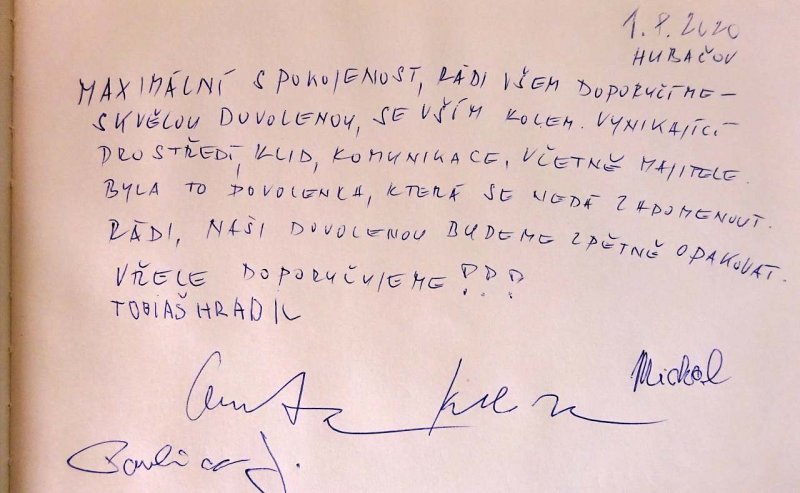 1.8.2020
HUBAČOV
MAXIMÁLNÍ SPOKOJENOST, RÁDI VŠEM DOPORUČÍME –
SKVĚLOU DOVOLENOU, SE VŠÍM KOLEM. VYNIKAJÍCÍ
PROSTŘEDÍ, KLID, KOMUNIKACE, VČETNĚ MAJITELE.
BYLA TO DOVOLENKA, KTERÁ SE NEDÁ ZAPOMENOUT.
RÁDI, NAŠI DOVOLENOU BUDEME ZPĚTNĚ OPAKOVAT.
VŘELE DOPORUČUJEME!!!
TOBIÁŠ HRADIL
Michal